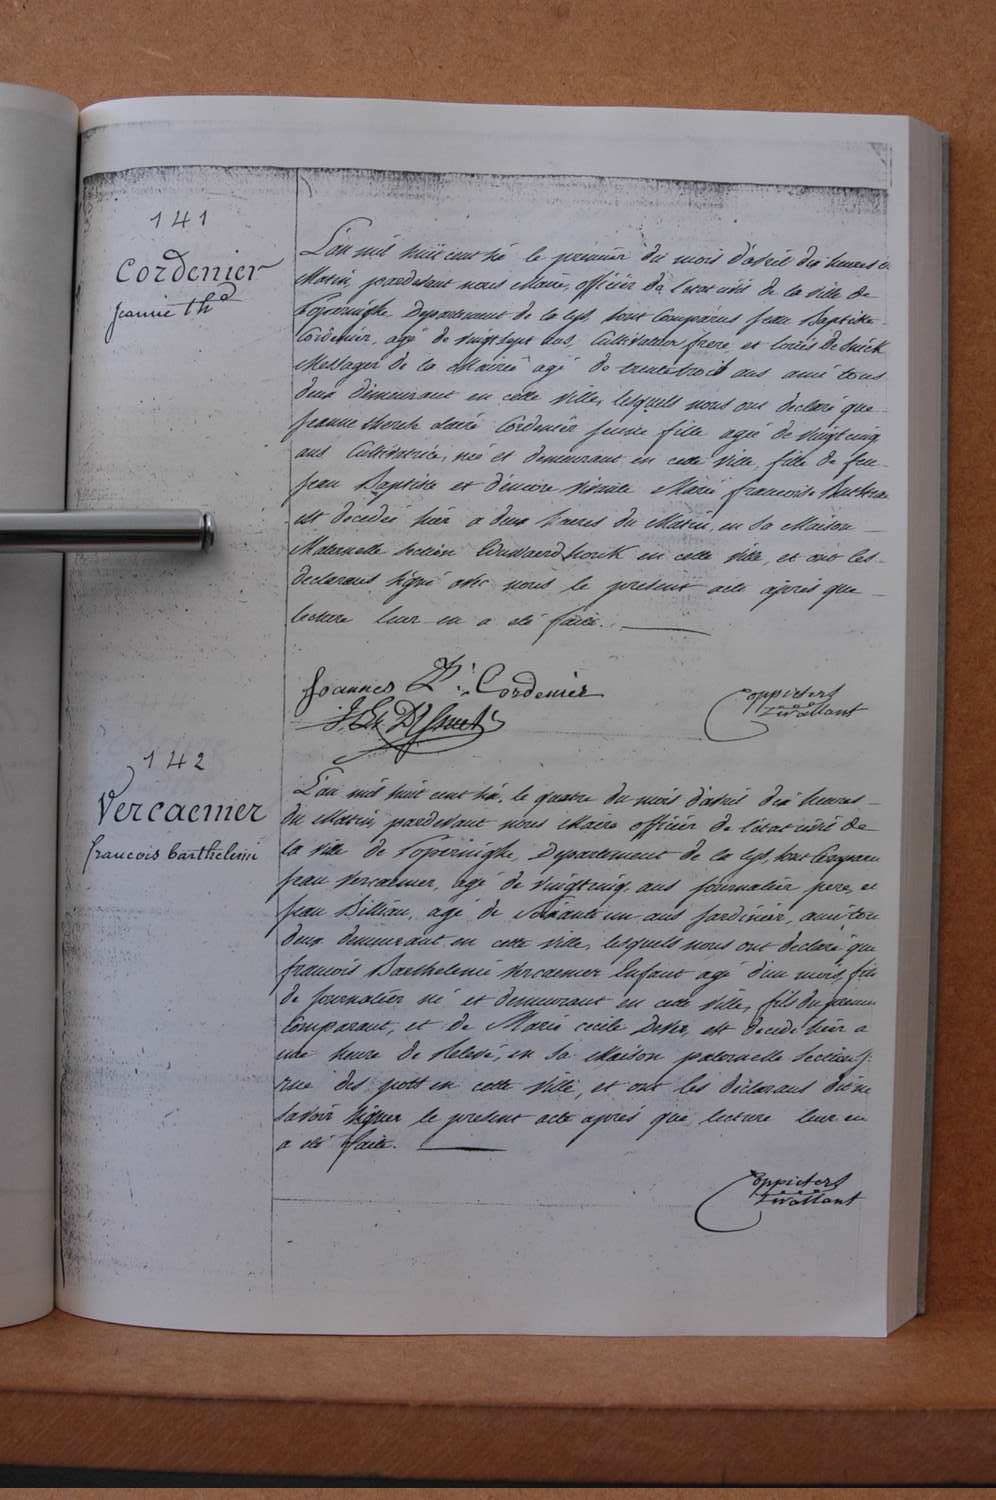 141
Cordenier
Jeanne Th.a
L'an mil huit cent six le premier du mois d'avril dix heures du
Matin, pardevant nous Maire, officier de l'etat civil de la ville de
Poperinghe Departement de la Lys, sont Comparus Jean Baptiste
Cordenier, agé de vingtsept ans, Cultivateur frere, et Louis
Messager de la Mairie agé de trentetrois ans ami tous
deux demeurant en cette ville, lesquels nous ont declaré que
Jeanne Therese Cordenier jeune fille agée de vingtcinq
ans Cultivatrice, née et demeurant en cette ville, fille de feu
Jean Baptiste et d'encore vivante Marie francoise
est decedée hier a deux heures du Matin, en sa Maison
Maternelle section en cette ville, et ont les
declarans signé avec nous le present acte après que
lecture leur en a eté faite.
Joannes Cordenier
Coppieters
Stivallant
142
Vercaemer
francois barthelemi
L'an mil huit cent six, le quatre du mois d'avril dix heures
du Matin, pardevant nous Maire officier de l'etat civil de
la ville de Poperinghe, Departement de la Lys, sont Comparus
Jean Vercaemer, agé de vingtcinq ans journalier pere, et
Jean Billiau, agé de ans Jardinier, ami tou
deux demeurant en cette ville, lesquels nous ont declaré que
francois Barthelemi Vercaemer Enfant agé d'un mois, fils
de journalier né et demeurant en cette ville, fils du premier
Comparant, et de Marie cecile est decedé hier a
une heure de relevé, en sa Maison paternelle section
rue des pots en cette ville, et ont les declarans dit ne
savoir signer le present acte après que lecture leur en
a eté faite.
Coppieters
Stivallant